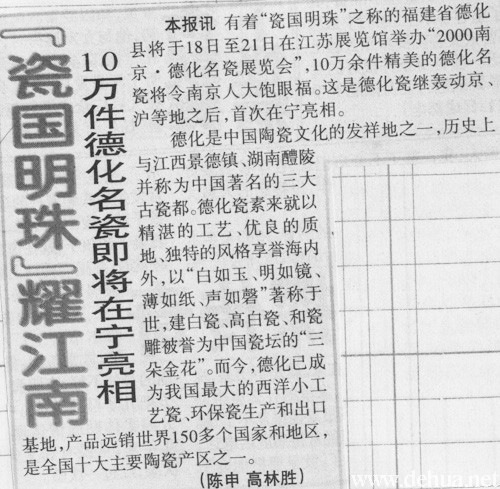 『瓷国明珠』耀江南
10万件德化名瓷即将在宁亮相
本报讯 有着“瓷国明珠”之称的福建省德化
县将于18日至21日在江苏展览馆举办“2000南
京·德化名瓷展览会”，10万余件精美的德化名
瓷将令南京人大饱眼福。这是德化瓷继轰动京、
沪等地之后，首次在宁亮相。
德化是中国陶瓷文化的发祥地之一，历史上
与江西景德镇、湖南醴陵
并称为中国著名的三大
古瓷都。德化瓷素来就以
精湛的工艺、优良的质
地、独特的风格享誉海内
外，以“白如玉、明如镜、
薄如纸、声如磬”著称于
世，建白瓷、高白瓷、和瓷
雕被誉为中国瓷坛的“三
朵金花”。而今，德化已成
为我国最大的西洋小工
艺瓷、环保瓷生产和出口
基地，产品远销世界150多个国家和地区，
是全国十大主要陶瓷产区之一。
（陈申 高林胜）
www.dehua.net